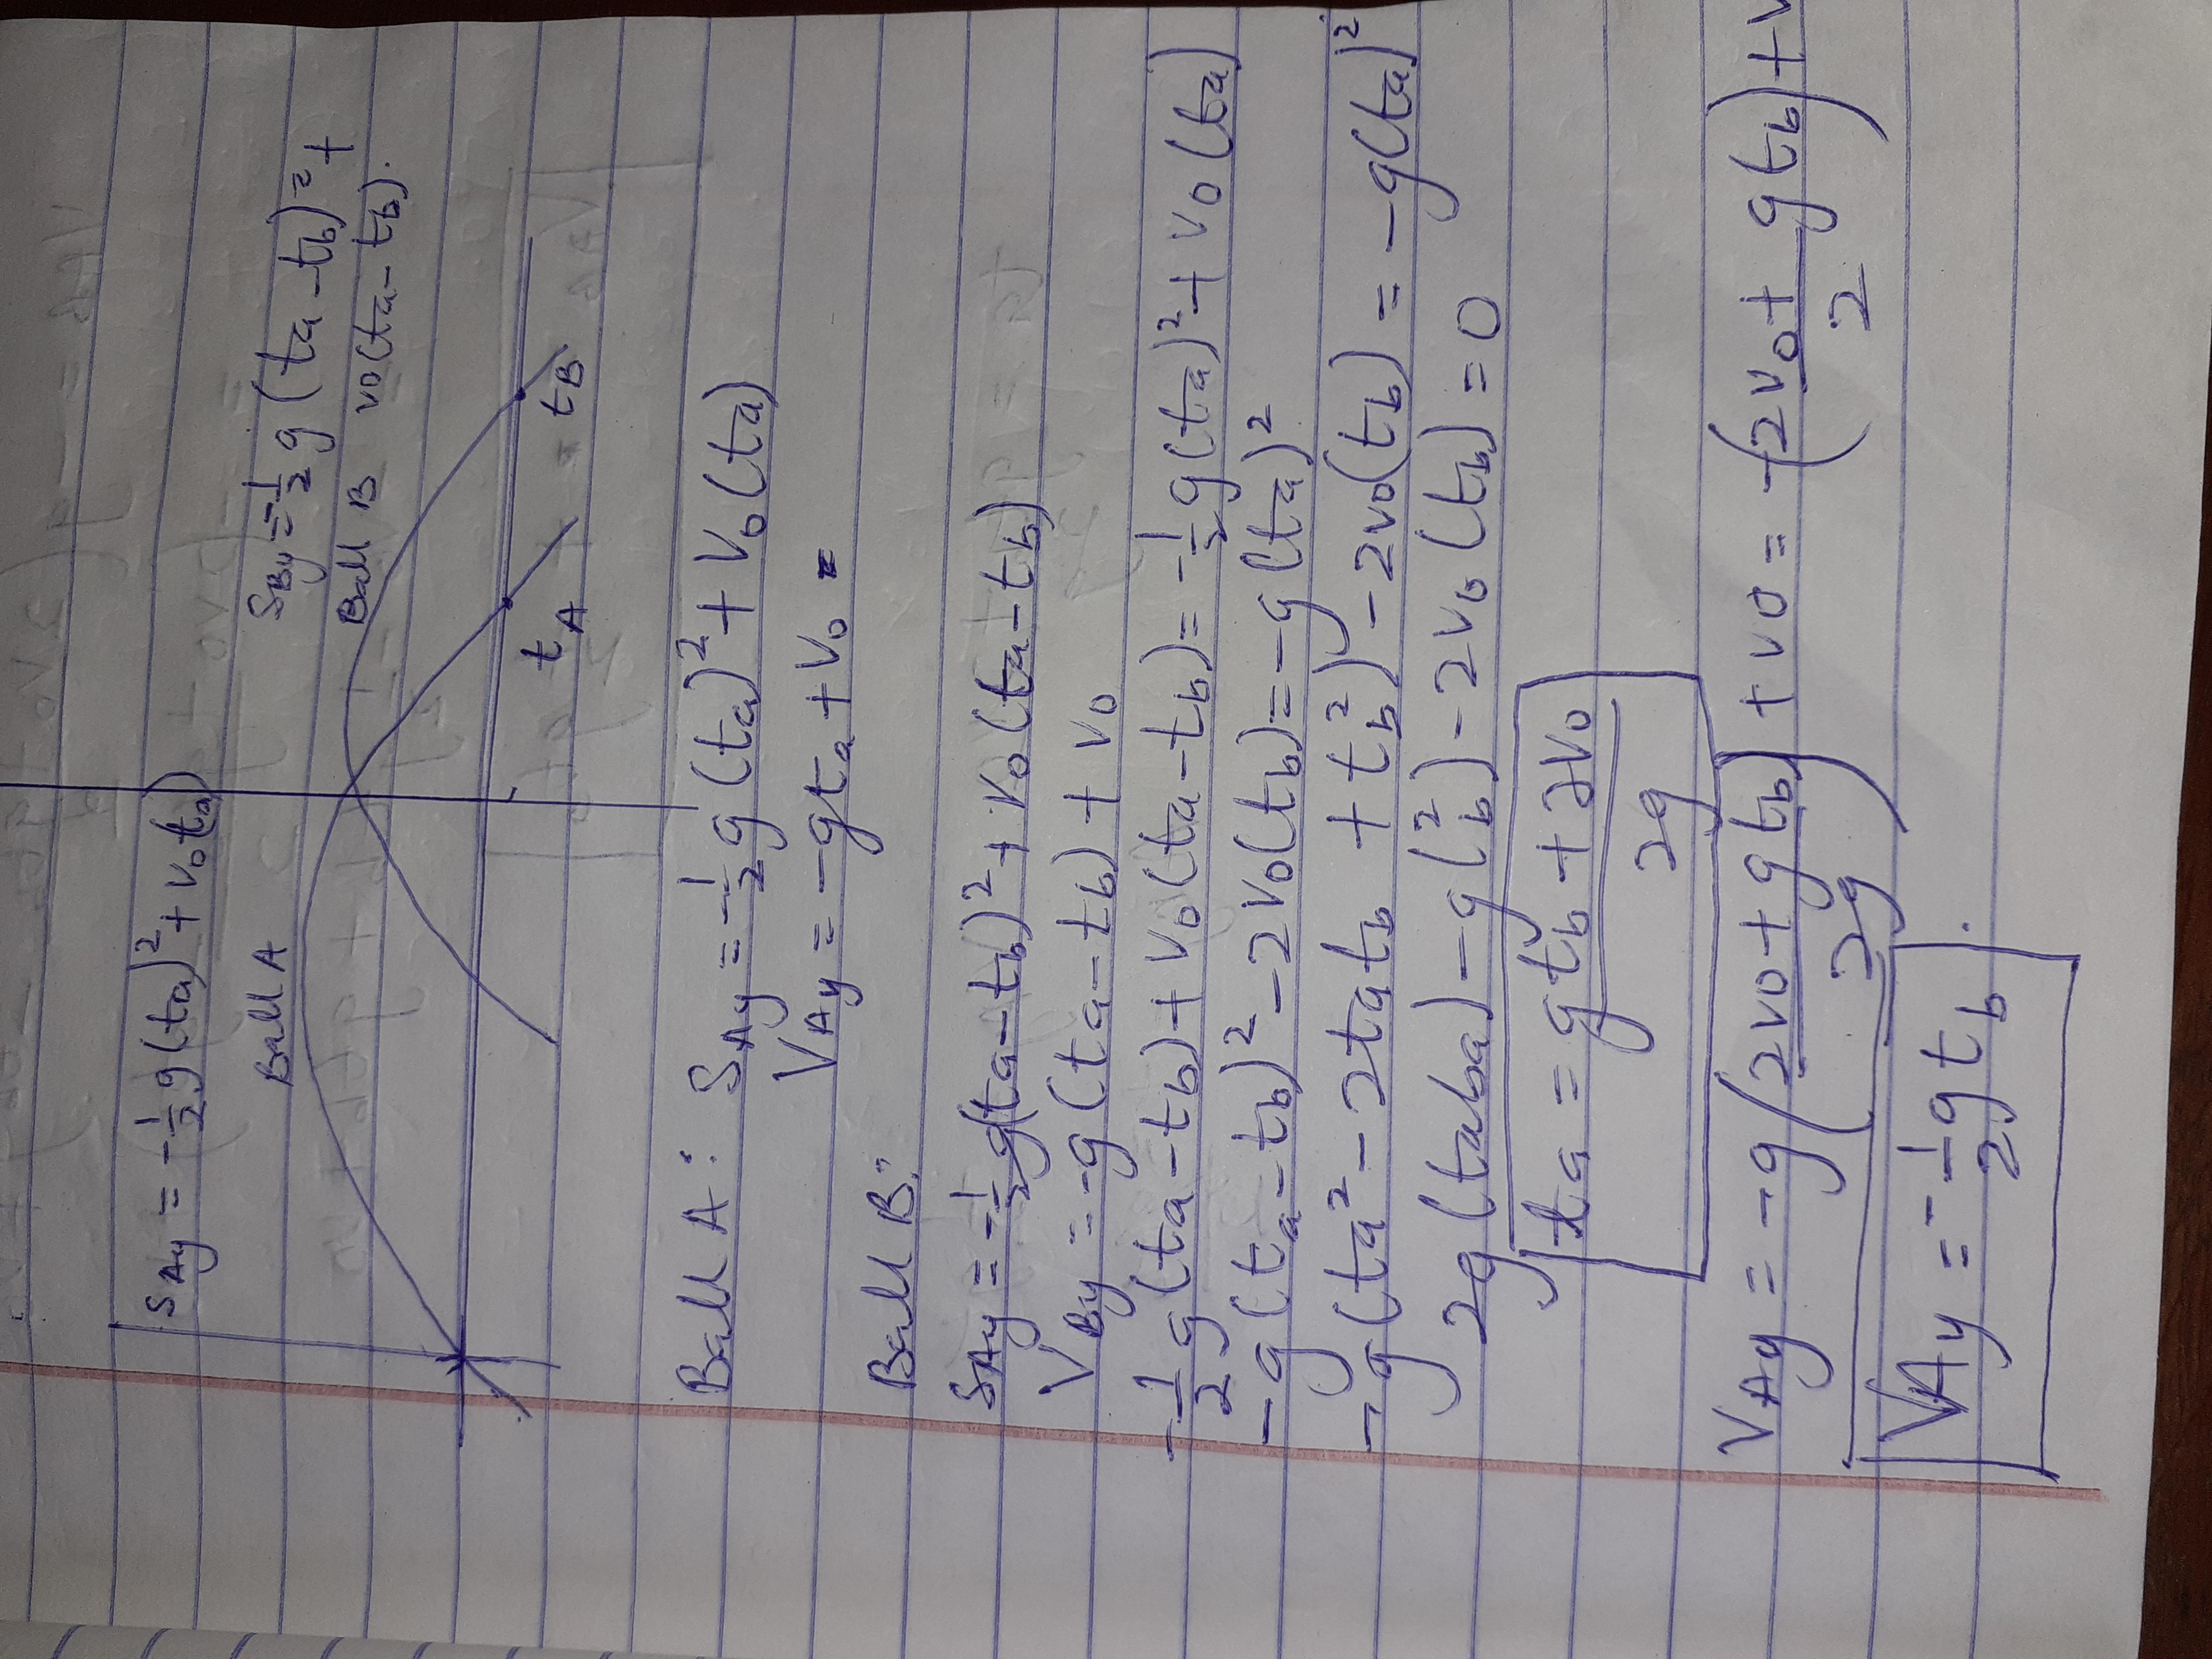 S_Ay = -1/2 g(ta)² + v₀ta)
S_By = -1/2 g (ta - tb)² +
v₀(ta - tb).
Ball A
Ball B
t_A
t_B
Ball A: S_Ay = -1/2 g (ta)² + v₀(ta)
V_Ay = -gta + v₀ =
Ball B:
S_Ay = -1/2 g(ta - tb)² + v₀(ta - tb)
V_By = -g(ta - tb) + v₀
-1/2 g(ta - tb) + v₀(ta - tb) = -1/2 g(ta)² + v₀(ta)
-g(ta - tb)² - 2v₀(tb) = -g(ta)²
-g(ta² - 2ta tb + tb²) - 2v₀(tb) = -g(ta)²
2g(ta ba) - g(tb²) - 2v₀(tb) = 0
ta = (gtb + 2v₀)/2g
V_Ay = -g((2v₀ + gtb)/2g) + v₀ = -((2v₀ + gtb)/2) + v
V_Ay = -1/2 gtb.